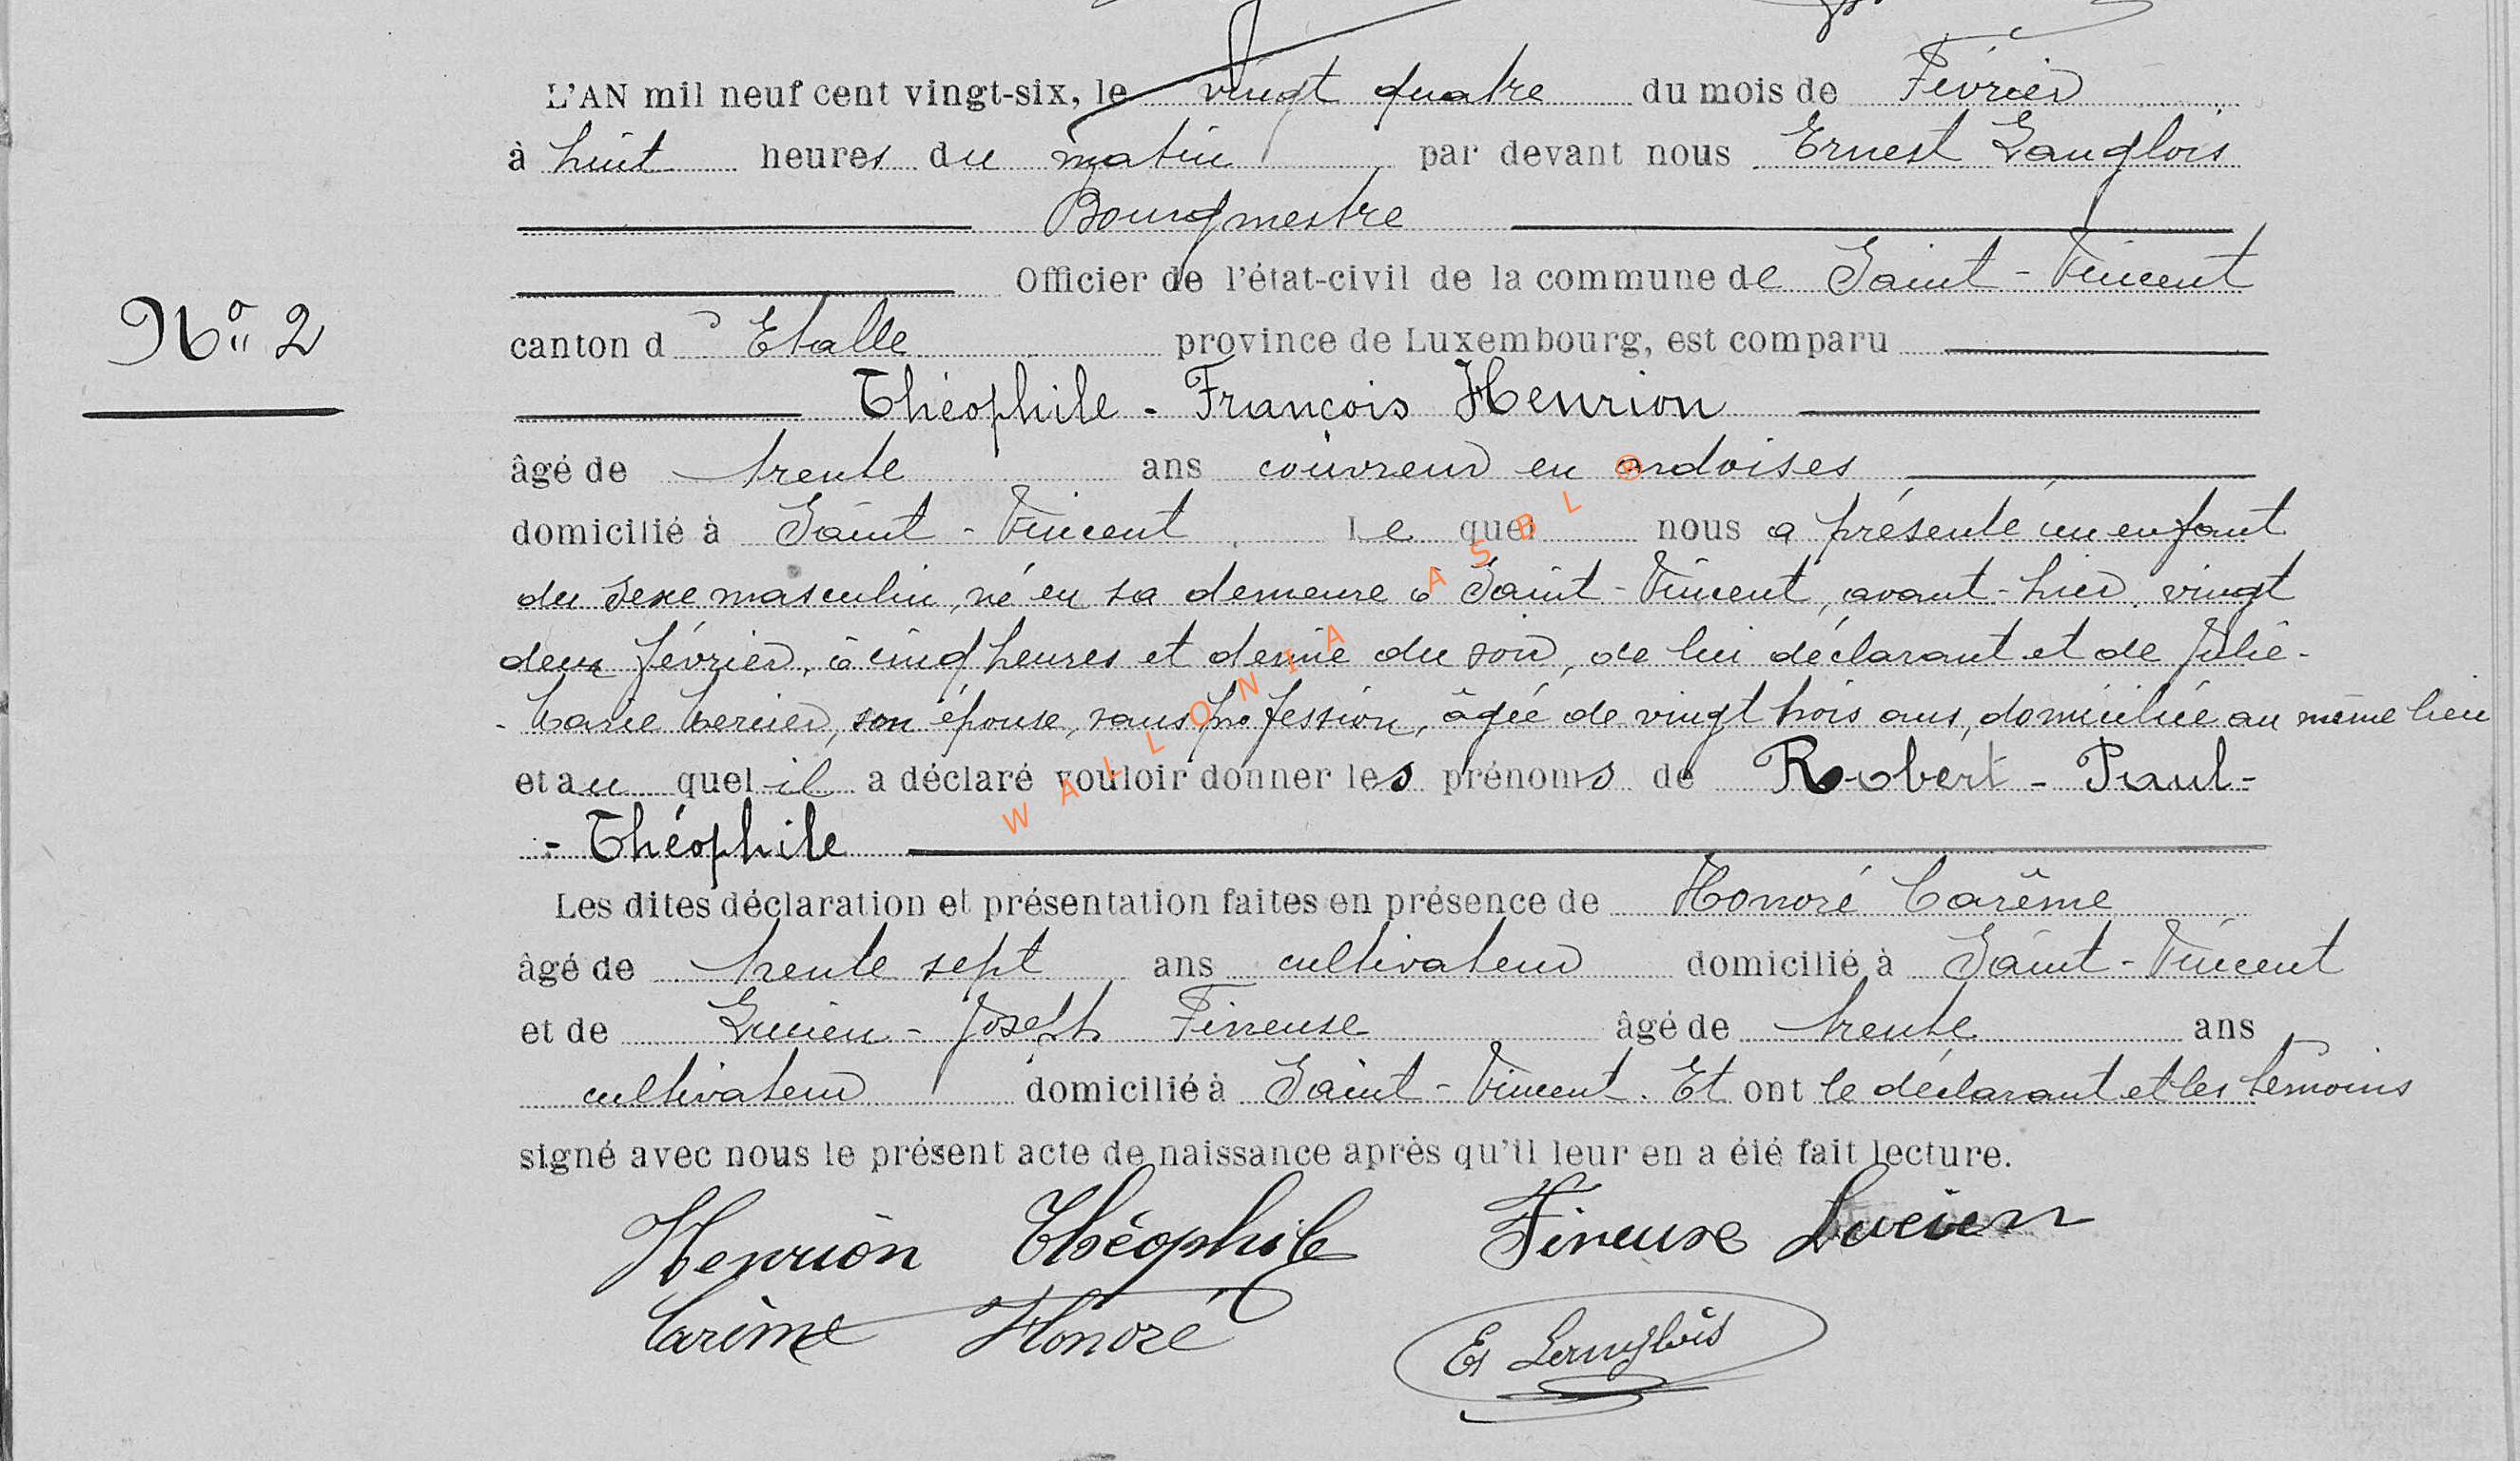 L'AN mil neuf cent vingt-six, le vingt quatre du mois de Février
à huit heures du matin par devant nous Ernest Langlois
Bourgmestre
Officier de l'état-civil de la commune de Saint-Vincent
N° 2
canton d'Etalle province de Luxembourg, est comparu
Théophile-François Henrion
âgé de trente ans couvreur en ardoises
domicilié à Saint-Vincent Lequel nous a présenté un enfant
du sexe masculin, né en sa demeure à Saint-Vincent, avant-hier vingt
deux février, à cinq heures et demie du soir, de lui déclarant et de Julie-
son épouse, sans profession, âgée de vingt trois ans, domiciliée au même lieu
et auquel il a déclaré vouloir donner les prénoms de Robert-Paul-
-Théophile
Les dites déclaration et présentation faites en présence de Honoré Carême
âgé de trente sept ans cultivateur domicilié à Saint-Vincent
et de Lucien-Joseph Fineuse âgé de trente ans
cultivateur domicilié à Saint-Vincent. Et ont le déclarant et les témoins
signé avec nous le présent acte de naissance après qu'il leur en a été fait lecture.
Henrion Théophile Fineuse Lucien
Carême Honoré Et Langlois
WALLONIA ASBL ®